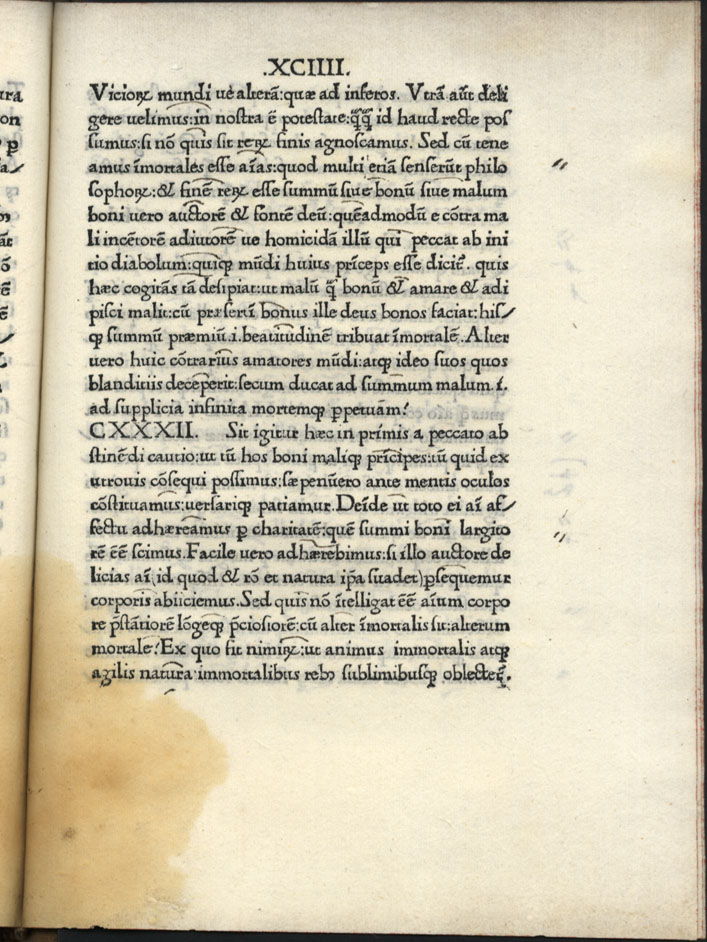 .XCIIII.
Vicioꝝ mundi ue alterā:quæ ad inferos. Vtrā aūt deli
gere uelimus:in nostra ē potestate:q̄q̄ id haud recte pos
sumus:si nō quis sit reꝝ finis agnoscamus. Sed cū tene
amus īmortales esse aīas:quod multi etiā senserūt philo
sophoꝝ:& finē reꝝ esse summū siue bonū siue malum
boni uero auctorē & fontē deū:quēadmodū e cōtra ma
li incētorē adiutorē ue homicidā illū qui peccat ab ini
tio diabolum:quiqꝫ mūdi huius prīceps esse dicit̄. quis
hæc cogitās tā desipiat:ut malū q̄ bonū & amare & adi
pisci malit:cū præsertī bonus ille deus bonos faciat:his/
qꝫ summū præmiū.i.beatitudinē tribuat īmortalē. Alter
uero huic cōtrarius amatores mūdi:atqꝫ ideo suos quos
blanditiis deceperit:secum ducat ad summum malum.i.
ad supplicia infinita mortemqꝫ ꝑpetuam?
CXXXII. Sit igitur hæc in prīmis a peccato ab
stinēdi cautio:ut tū hos boni maliqꝫ prīcipes:tū quid ex
utrouis cōsequi possimus:sæpenūero ante mentis oculos
cōstituamus:uersariqꝫ patiamur. Deīde ut toto ei aī af/
fectu adhæreamus ꝑ charitatē:quē summi boni largito
rē ēē scimus. Facile uero adhærebimus:si illo auctore de
licias aī(id quod & rō et natura ip̄a suadet)ꝑsequemur
corporis abiiciemus. Sed quis nō ītelligat ēē aīum corpo
re p̄stātiorē lōgeqꝫ p̄ciosiorē:cū alter īmortalis sit:alterum
mortale? Ex quo fit nimiꝝ:ut animus immortalis atqꝫ
agilis natura immortalibus rebꝰ sublimibusqꝫ oblecteꞇ̄.